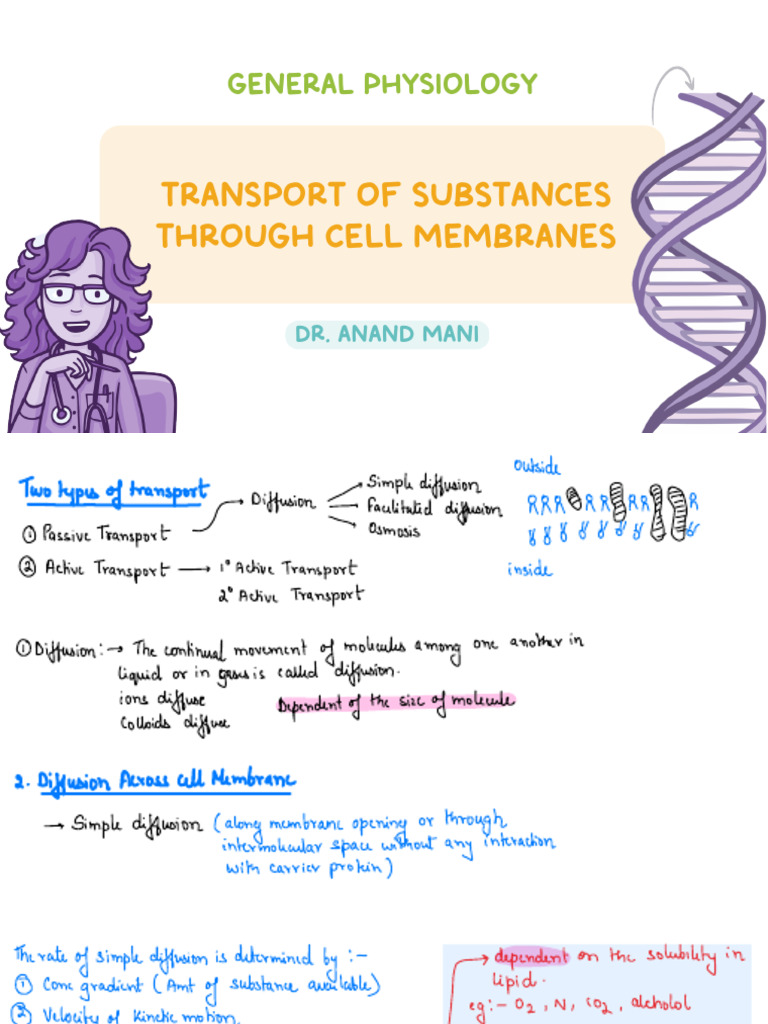 GENERAL PHYSIOLOGY
TRANSPORT OF SUBSTANCES
THROUGH CELL MEMBRANES
DR. ANAND MANI
Two types of transport
① Passive Transport → Diffusion → Simple diffusion
→ Facilitated diffusion
→ Osmosis
② Active Transport → 1° Active Transport
2° Active Transport
Outside
inside
① Diffusion:→ The continual movement of molecules among one another in
liquid or in gases is called diffusion.
ions diffuse
Dependent of the size of molecule
Colloids diffuse
2. Diffusion Across Cell Membrane
→ Simple diffusion (along membrane opening or through
intermolecular space without any interaction
with carrier protien)
The rate of simple diffusion is determined by :-
① Conc gradient (Amt of substance available)
② Velocity of kinetic motion.
→ dependent on the solubility in
lipid.
eg:- O2, N, CO2, alcholol